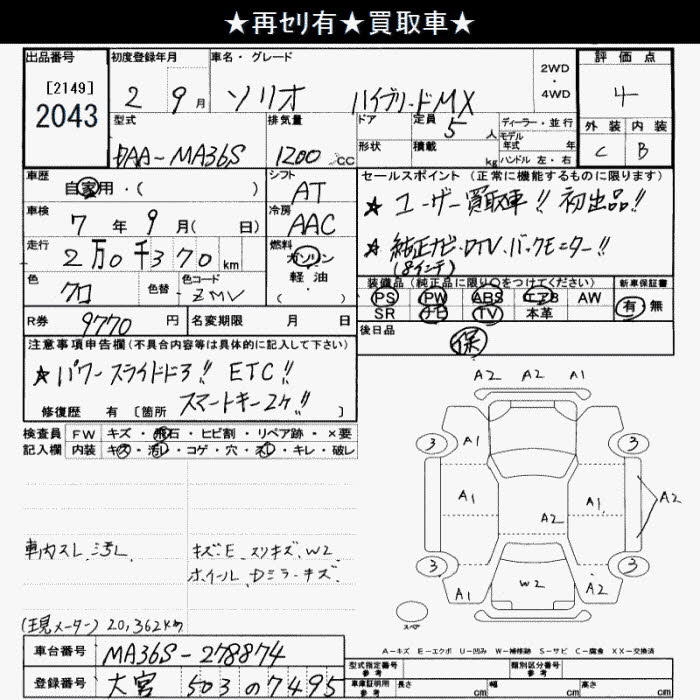 ★再ｾﾘ有★買取車★
出品番号 初度登録年月 車名・グレード 2WD・4WD 評価点
[2149]
2043
2 9月 ソリオ ハイブリードMX 4
型式 排気量 ドア 定員 5人 ディーラー・並行 外装 内装
DAA-MA36S 1200cc 形状 積載 kg モデル年式 年 ハンドル 左・右 C B
車歴 シフト セールスポイント (正常に機能するものに限ります)
自家用・( ) AT ★ユーザー買取車!! 初出品!!
車検 冷房
7年9月( 日) AAC ★純正ナビ・DTV・バックモニター!!
走行 燃料 (8インチ)
2万0千370km ガソリン
軽油
( )
色 色替 色コード 装備品(純正品に限り○をつけてください) 新車保証書
クロ ZMV PS PW ABS エアB AW 有 無
SR ナビ TV 本革
R券 9770円 名変期限 月 日 後日品
保
注意事項申告欄(不具合内容等は具体的に記入して下さい)
★パワースライドドア!! ETC!!
スマートキー2ケ!!
修復歴 有 [箇所
検査員 FW キズ・飛石・ヒビ割・リペア跡・×要
記入欄 内装 キズ・汚レ・コゲ・穴・スレ・キレ・破レ
A2 A2 A1
3 A1 3
A1 A1 A2
A2
3 3
A1 W2 A2
スペア
車内スレ、汚レ キズ・E、スリキズ、W2
ホイール、Dミラーキズ
(現メーター) 20,362km
A－キズ E－エクボ U－凹み W－補修跡 S－サビ C－腐食 XX－交換済
車台番号 MA36S-278874
登録番号 大宮 503 の 7495
型式指定番号 参考 類別区分番号 参考
車庫証明用 参考 長さ cm 幅 cm 高さ cm